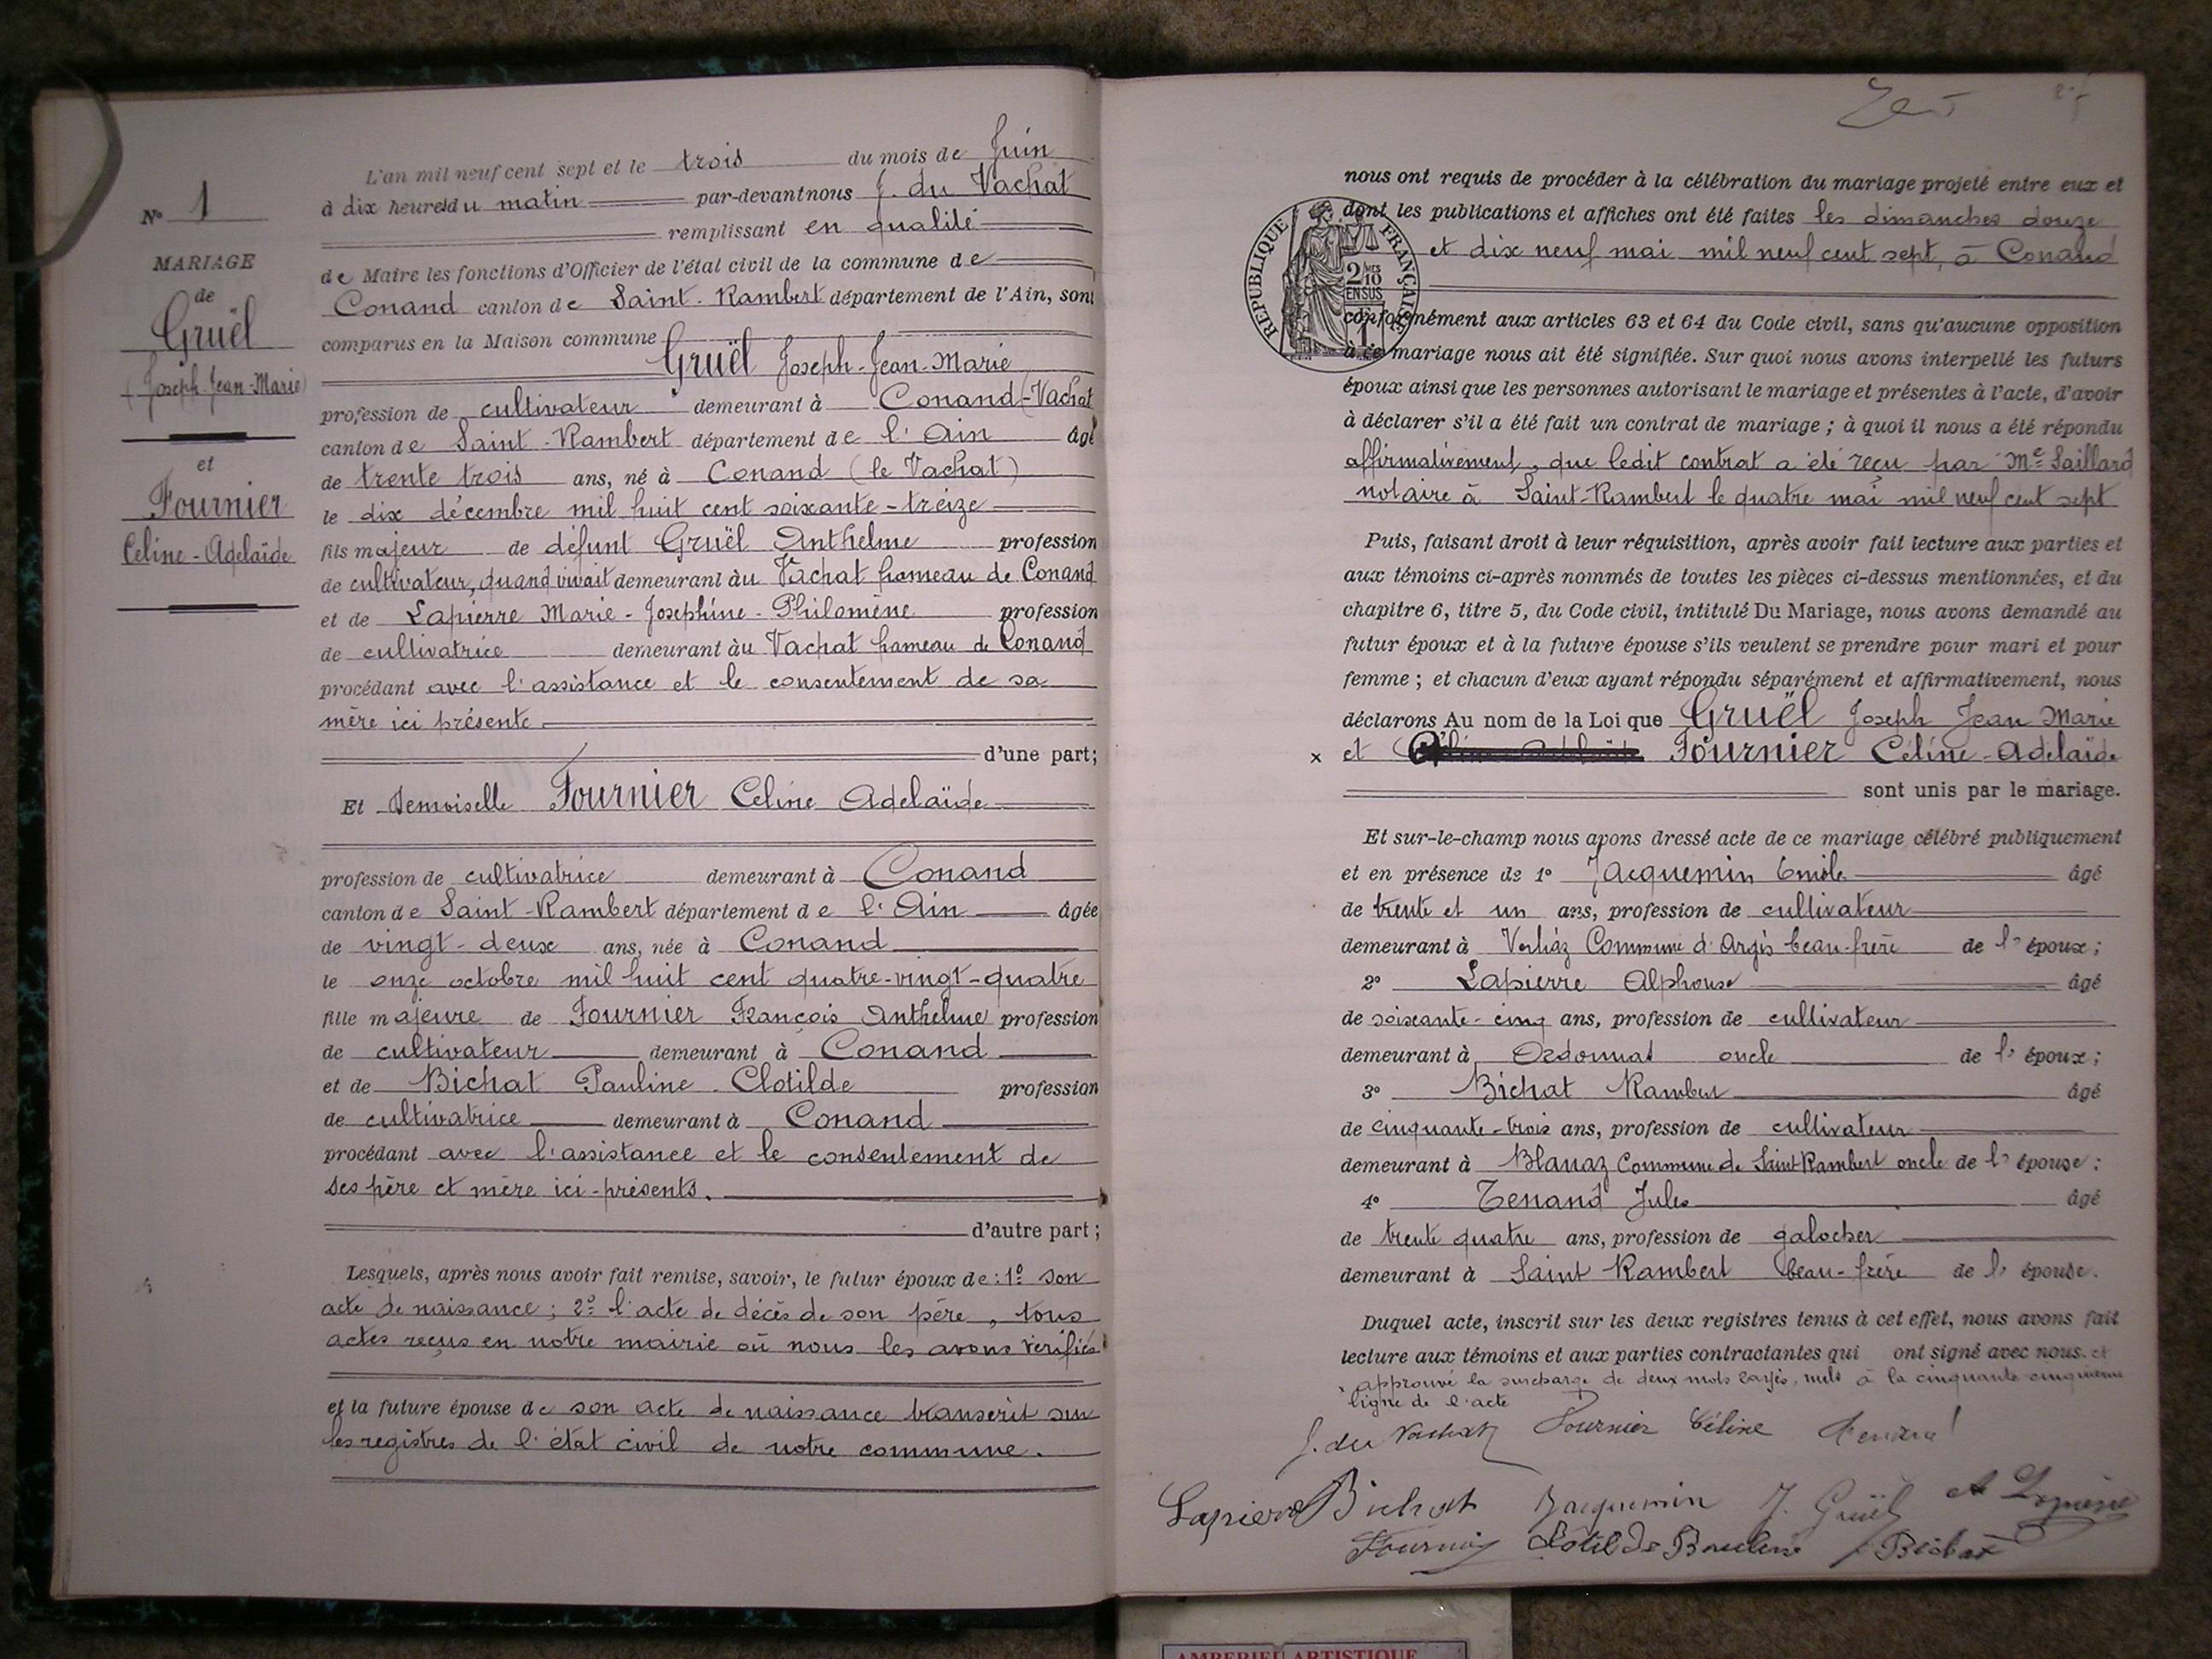 N° 1
MARIAGE
de
Gruël
(Joseph-Jean-Marie)
et
Fournier
Céline-Adelaïde
L'an mil neuf cent sept et le trois du mois de Juin
à dix heures du matin par-devant nous J. du Vachat
remplissant en qualité
de Maire les fonctions d'Officier de l'état civil de la commune de
Conand canton de Saint-Rambert département de l'Ain, sont
comparus en la Maison commune
Gruël Joseph-Jean-Marie
profession de cultivateur demeurant à Conand-(Vachat
canton de Saint-Rambert département de l'Ain âgé
de trente trois ans, né à Conand (le Vachat)
le dix décembre mil huit cent soixante-treize
fils majeur de défunt Gruël Anthelme profession
de cultivateur, quand vivait demeurant àu Vachat hameau de Conand
et de Lapierre Marie-Josephine-Philomène profession
de cultivatrice demeurant àu Vachat hameau de Conand
procédant avec l'assistance et le consentement de sa
mère ici présente
d'une part;
Et Demoiselle Fournier Céline Adelaïde
profession de cultivatrice demeurant à Conand
canton de Saint-Rambert département de l'Ain âgée
de vingt-deux ans, née à Conand
le onze octobre mil huit cent quatre-vingt-quatre
fille majeure de Fournier François Anthelme profession
de cultivateur demeurant à Conand
et de Bichat Pauline-Clotilde profession
de cultivatrice demeurant à Conand
procédant avec l'assistance et le consentement de
ses père et mère ici-présents.
d'autre part;
Lesquels, après nous avoir fait remise, savoir, le futur époux de: 1° son
acte de naissance; 2° l'acte de décès de son père, tous
actes reçus en notre mairie où nous les avons vérifiés
et la future épouse de son acte de naissance transcrit sur
les registres de l'état civil de notre commune.
RÉPUBLIQUE FRANÇAISE
2/10 EN SUS
nous ont requis de procéder à la célébration du mariage projeté entre eux et
dont les publications et affiches ont été faites les dimanches douze
et dix neuf mai mil neuf cent sept, à Conand
conformément aux articles 63 et 64 du Code civil, sans qu'aucune opposition
à ce mariage nous ait été signifiée. Sur quoi nous avons interpellé les futurs
époux ainsi que les personnes autorisant le mariage et présentes à l'acte, d'avoir
à déclarer s'il a été fait un contrat de mariage; à quoi il nous a été répondu
affirmativement, que ledit contrat a été reçu par Me Saillard
notaire à Saint-Rambert le quatre mai mil neuf cent sept
Puis, faisant droit à leur réquisition, après avoir fait lecture aux parties et
aux témoins ci-après nommés de toutes les pièces ci-dessus mentionnées, et du
chapitre 6, titre 5, du Code civil, intitulé Du Mariage, nous avons demandé au
futur époux et à la future épouse s'ils veulent se prendre pour mari et pour
femme; et chacun d'eux ayant répondu séparément et affirmativement, nous
déclarons Au nom de la Loi que Gruël Joseph Jean Marie
x et Fournier Céline-Adelaïde
sont unis par le mariage.
Et sur-le-champ nous avons dressé acte de ce mariage célébré publiquement
et en présence de 1° Jacquemin Emile âgé
de trente et un ans, profession de cultivateur
demeurant à Commune d'Argis beau-frère de l' époux;
2° Lapierre Alphonse âgé
de soixante-cinq ans, profession de cultivateur
demeurant à Ordonnat oncle de l' époux;
3° Bichat Rambert âgé
de cinquante-trois ans, profession de cultivateur
demeurant à Blanaz Commune de Saint Rambert oncle de l' épouse;
4° Tenand Jules âgé
de trente quatre ans, profession de galocher
demeurant à Saint Rambert beau-frère de l' épouse.
Duquel acte, inscrit sur les deux registres tenus à cet effet, nous avons fait
lecture aux témoins et aux parties contractantes qui ont signé avec nous. et
x approuvé la surcharge de deux mots rayés, nuls à la cinquante cinquième
ligne de l'acte
J. du Vachat Fournier Céline Tenand
Lapierre Bichat Jacquemin J. Gruël A Lapierre
Fournier Clotilde Bichat
AMBERIEU ARTISTIQUE